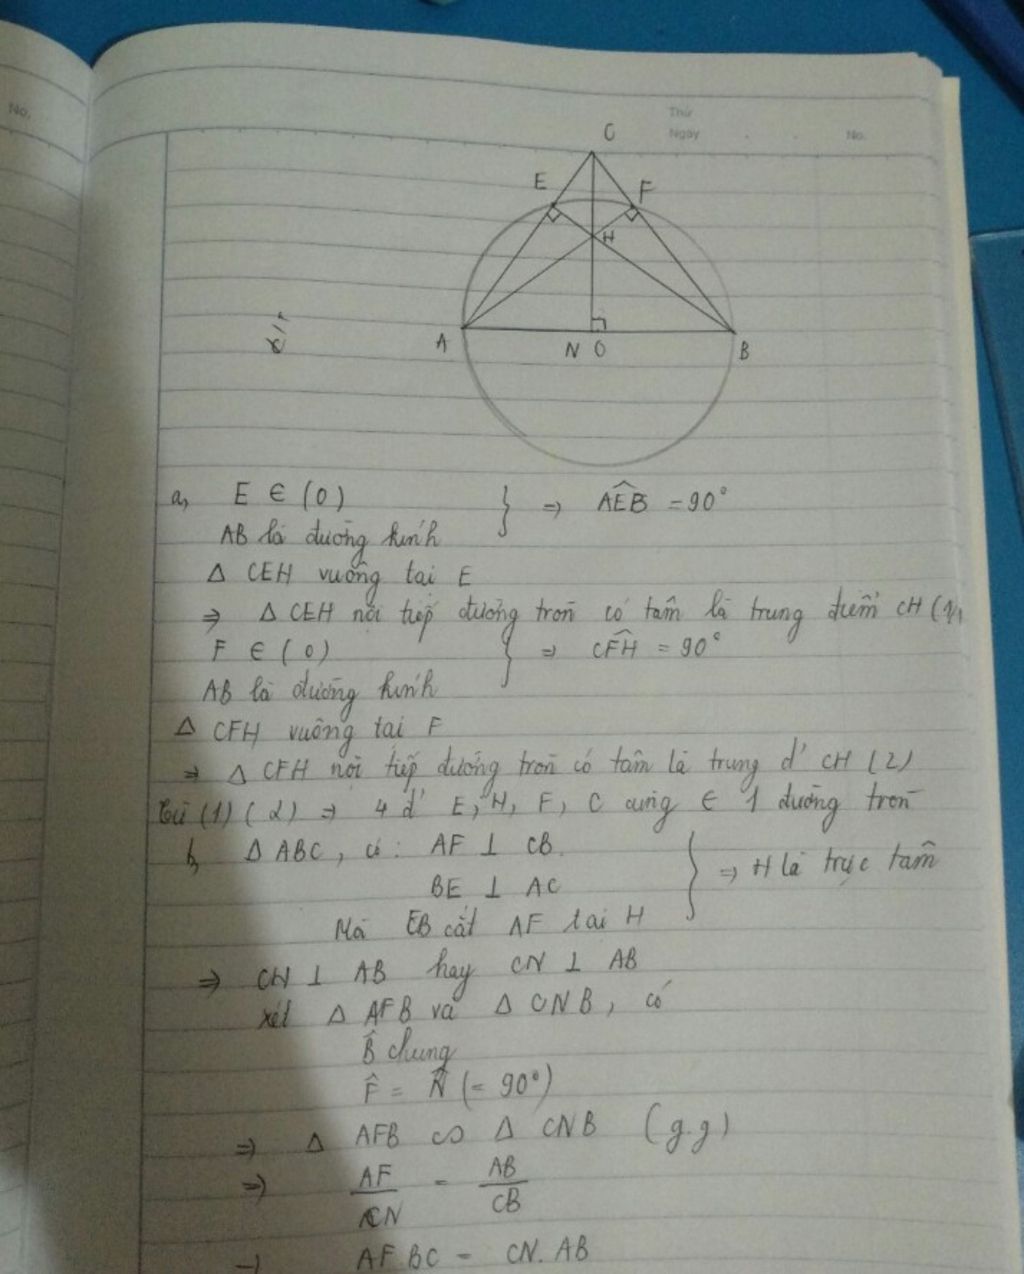 No.
Thứ
Ngày
No.
C
E
F
H
A
N O
B
a, E ∈ (O)
AB là đường kính
} => AEB̂ = 90°
Δ CEH vuông tại E
=> Δ CEH nội tiếp đường tròn có tâm là trung điểm CH (1)
F ∈ (O)
AB là đường kính
} => CFĤ = 90°
Δ CFH vuông tại F
=> Δ CFH nội tiếp đường tròn có tâm là trung đ' CH (2)
Từ (1) (2) => 4 đ' E, H, F, C cùng ∈ 1 đường tròn
b, Δ ABC, có: AF ⊥ CB
BE ⊥ AC
Mà EB cắt AF tại H
} => H là trực tâm
=> CH ⊥ AB hay CN ⊥ AB
xét Δ AFB và Δ CNB, có
B̂ chung
F̂ = N̂ (= 90°)
=> Δ AFB ∽ Δ CNB (g.g)
=> AF/CN = AB/CB
=> AF.BC = CN.AB